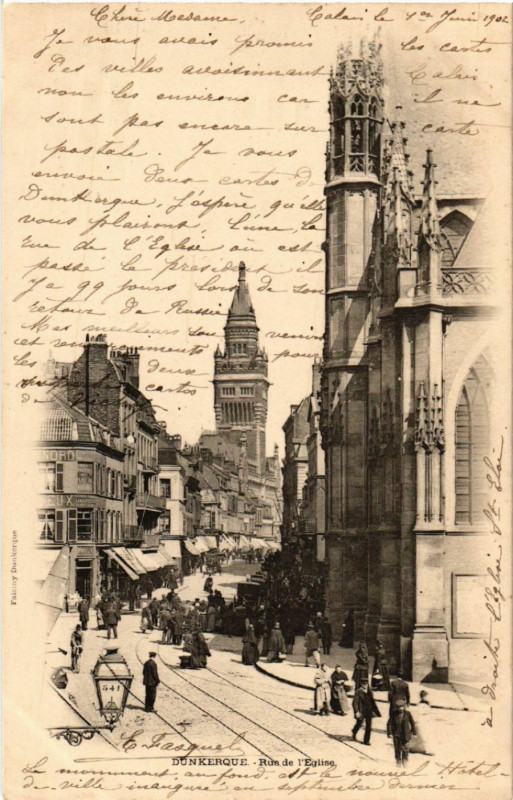 Chère Madame, Calais le 1er Juin 1902
Je vous avais promis les cartes
Des villes avoisinnant Calais
non les environs car il ne
sont pas encore sur carte
postale. Je vous
envoi deux cartes d
Dunkerque, J'espère qu'elle
vous plairont. L'une, la
rue de L'Eglise où est
passé le president il
Ja 99 jours lors de son
retour de Russie
Mes meilleurs souvenirs
et remerciements pour
les deux
cartes
E Fasquel
NORD
541
à droite L'Eglise St Eloi
Fainny Dunkerque
DUNKERQUE. - Rue de l'Eglise.
Le monument au fond est le nouvel Hôtel-
de-ville inauguré en septembre dernier